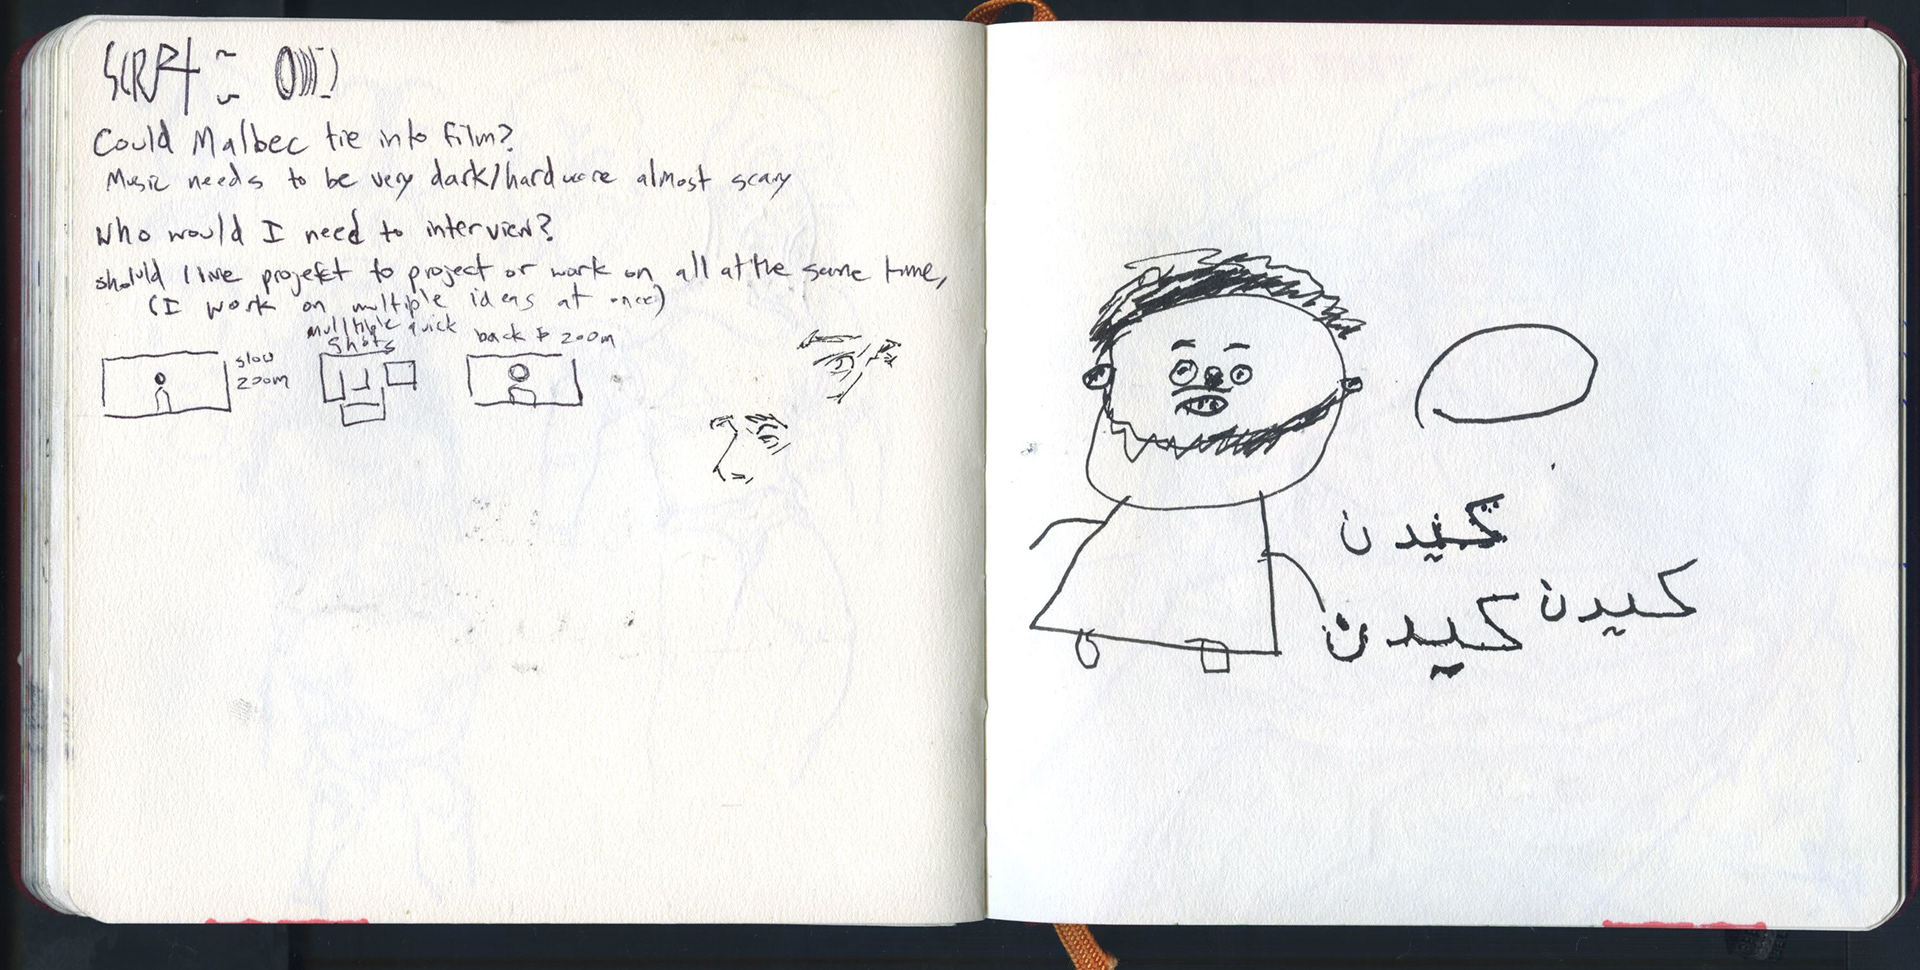 Could Malbec tie into film?
Music needs to be very dark/hardware almost scary
Who would I need to interview?
should I line projefct to project or work on all at the same time,
(I work on multiple ideas at once)
mulltiple quick
shots
back & zoom
slow
zoom
كيدن
كيدن
كيدن